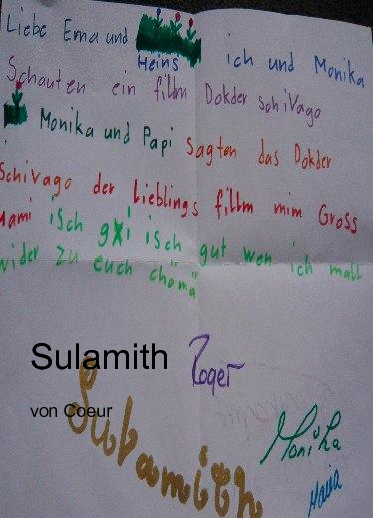 Liebe Erna und
Heins ich und Monika
Schauten ein fillm Dokder schiVago
Monika und Papi sagten das Dokder
Schivago der Lieblings fillm mim Gross
mami isch gxi isch gut wen ich mall
wider zu euch chömä
Sulamith
Roger
von Coeur
Sulamith
Monika
Maria